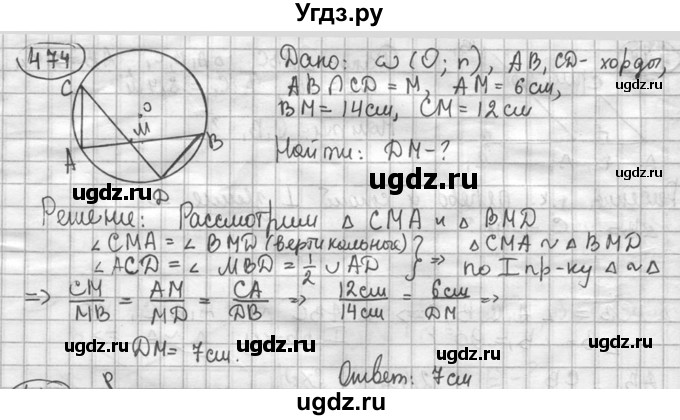 Угдз.ру
474
Дано: ω (O; r), AB, CD - хорды,
AB ∩ CD = M, AM = 6 см,
BM = 14 см, CM = 12 см
Найти: DM - ?
C
O
M
A
B
D
ugdz.ru ugdz.ru ugdz.ru
Решение: Рассмотрим △ CMA и △ BMD
∠ CMA = ∠ BMD (вертикальные) } △ CMA ~ △ BMD
∠ ACD = ∠ MBD = 1/2 ∪ AD } => по I пр-ку △ ~ △
=> CM/MB = AM/MD = CA/DB => 12см/14см = 6см/DM =>
DM = 7 см.
ugdz.ru ugdz.ru ugdz.ru
Ответ: 7 см
ugdz.ru ugdz.ru ugdz.ru